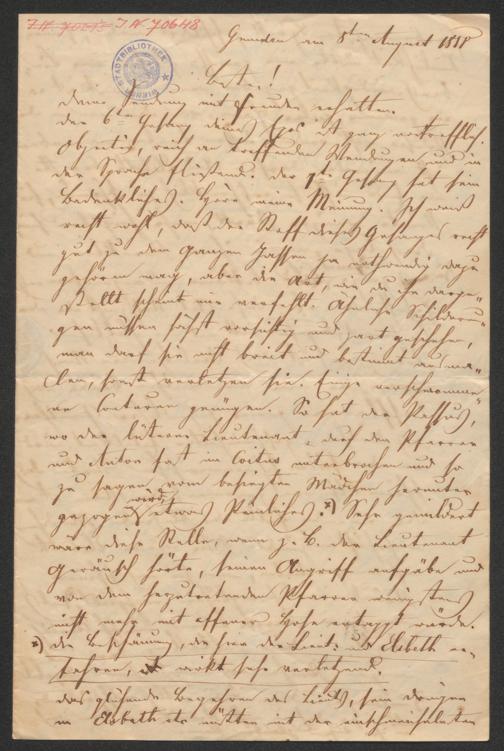 I.N. 70648
WIENER STADTBIBLIOTHEK
Gmunden am 8ten August 1888
Bester!
Deine Sendung mit Freuden erhalten.
Der 6te Gesang deines Epos ist ganz vortrefflich.
Objectiv, reich an treffenden Wendungen und in
der Sprache fließend. Der 7te Gesang hat sein
Bedenkliches. Höre meine Meinung. Ich weiß
recht wohl, daß der Stoff dieses Gesanges recht
gut zu dem Ganzen passen ja nothwendig dazu
gehören mag, aber die Art, wie du ihn darge-
stellt scheint mir verfehlt. Ähnliche Schilderun-
gen müssen höchst vorsichtig und zart geschehen,
man darf sie nicht breit und bestimmt ausma-
len, sonst verletzen sie. Einige verschwommene
Conturen genügen. So hat der Passus,
wo der lüsterne Lieutenant durch den Pfarrer
und Anton fast im Coitus unterbrochen und so
zu sagen vom besiegten Mädchen herunter
gezogen wird etwas Peinliches. x) Sehr gemildert
wäre diese Stelle, wenn z. B. der Lieutenant
Geräusch hörte, seinen Angriff aufgäbe und
von dem hinzutretenden Pfarrer wenigstens
nicht mehr mit offener Hose ertappt würde.
x) die Beschämung, die hier der Lieut: und Elsbeth er-
fahren, wirkt sehr verletzend.
Das glühende Begehren des Lieuts, sein Dringen
in Elsbeth etc müßten mit der einschmeichelndsten